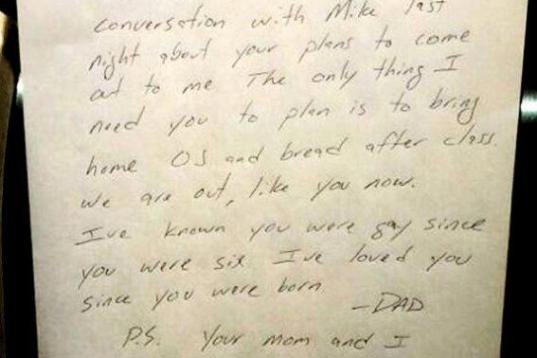 conversation with Mike last
night about your plans to come
out to me The only thing I
need you to plan is to bring
home OJ and bread after class.
we are out, like you now.
I've known you were gay since
you were six I've loved you
since you were born
-DAD
P.S. Your mom and I